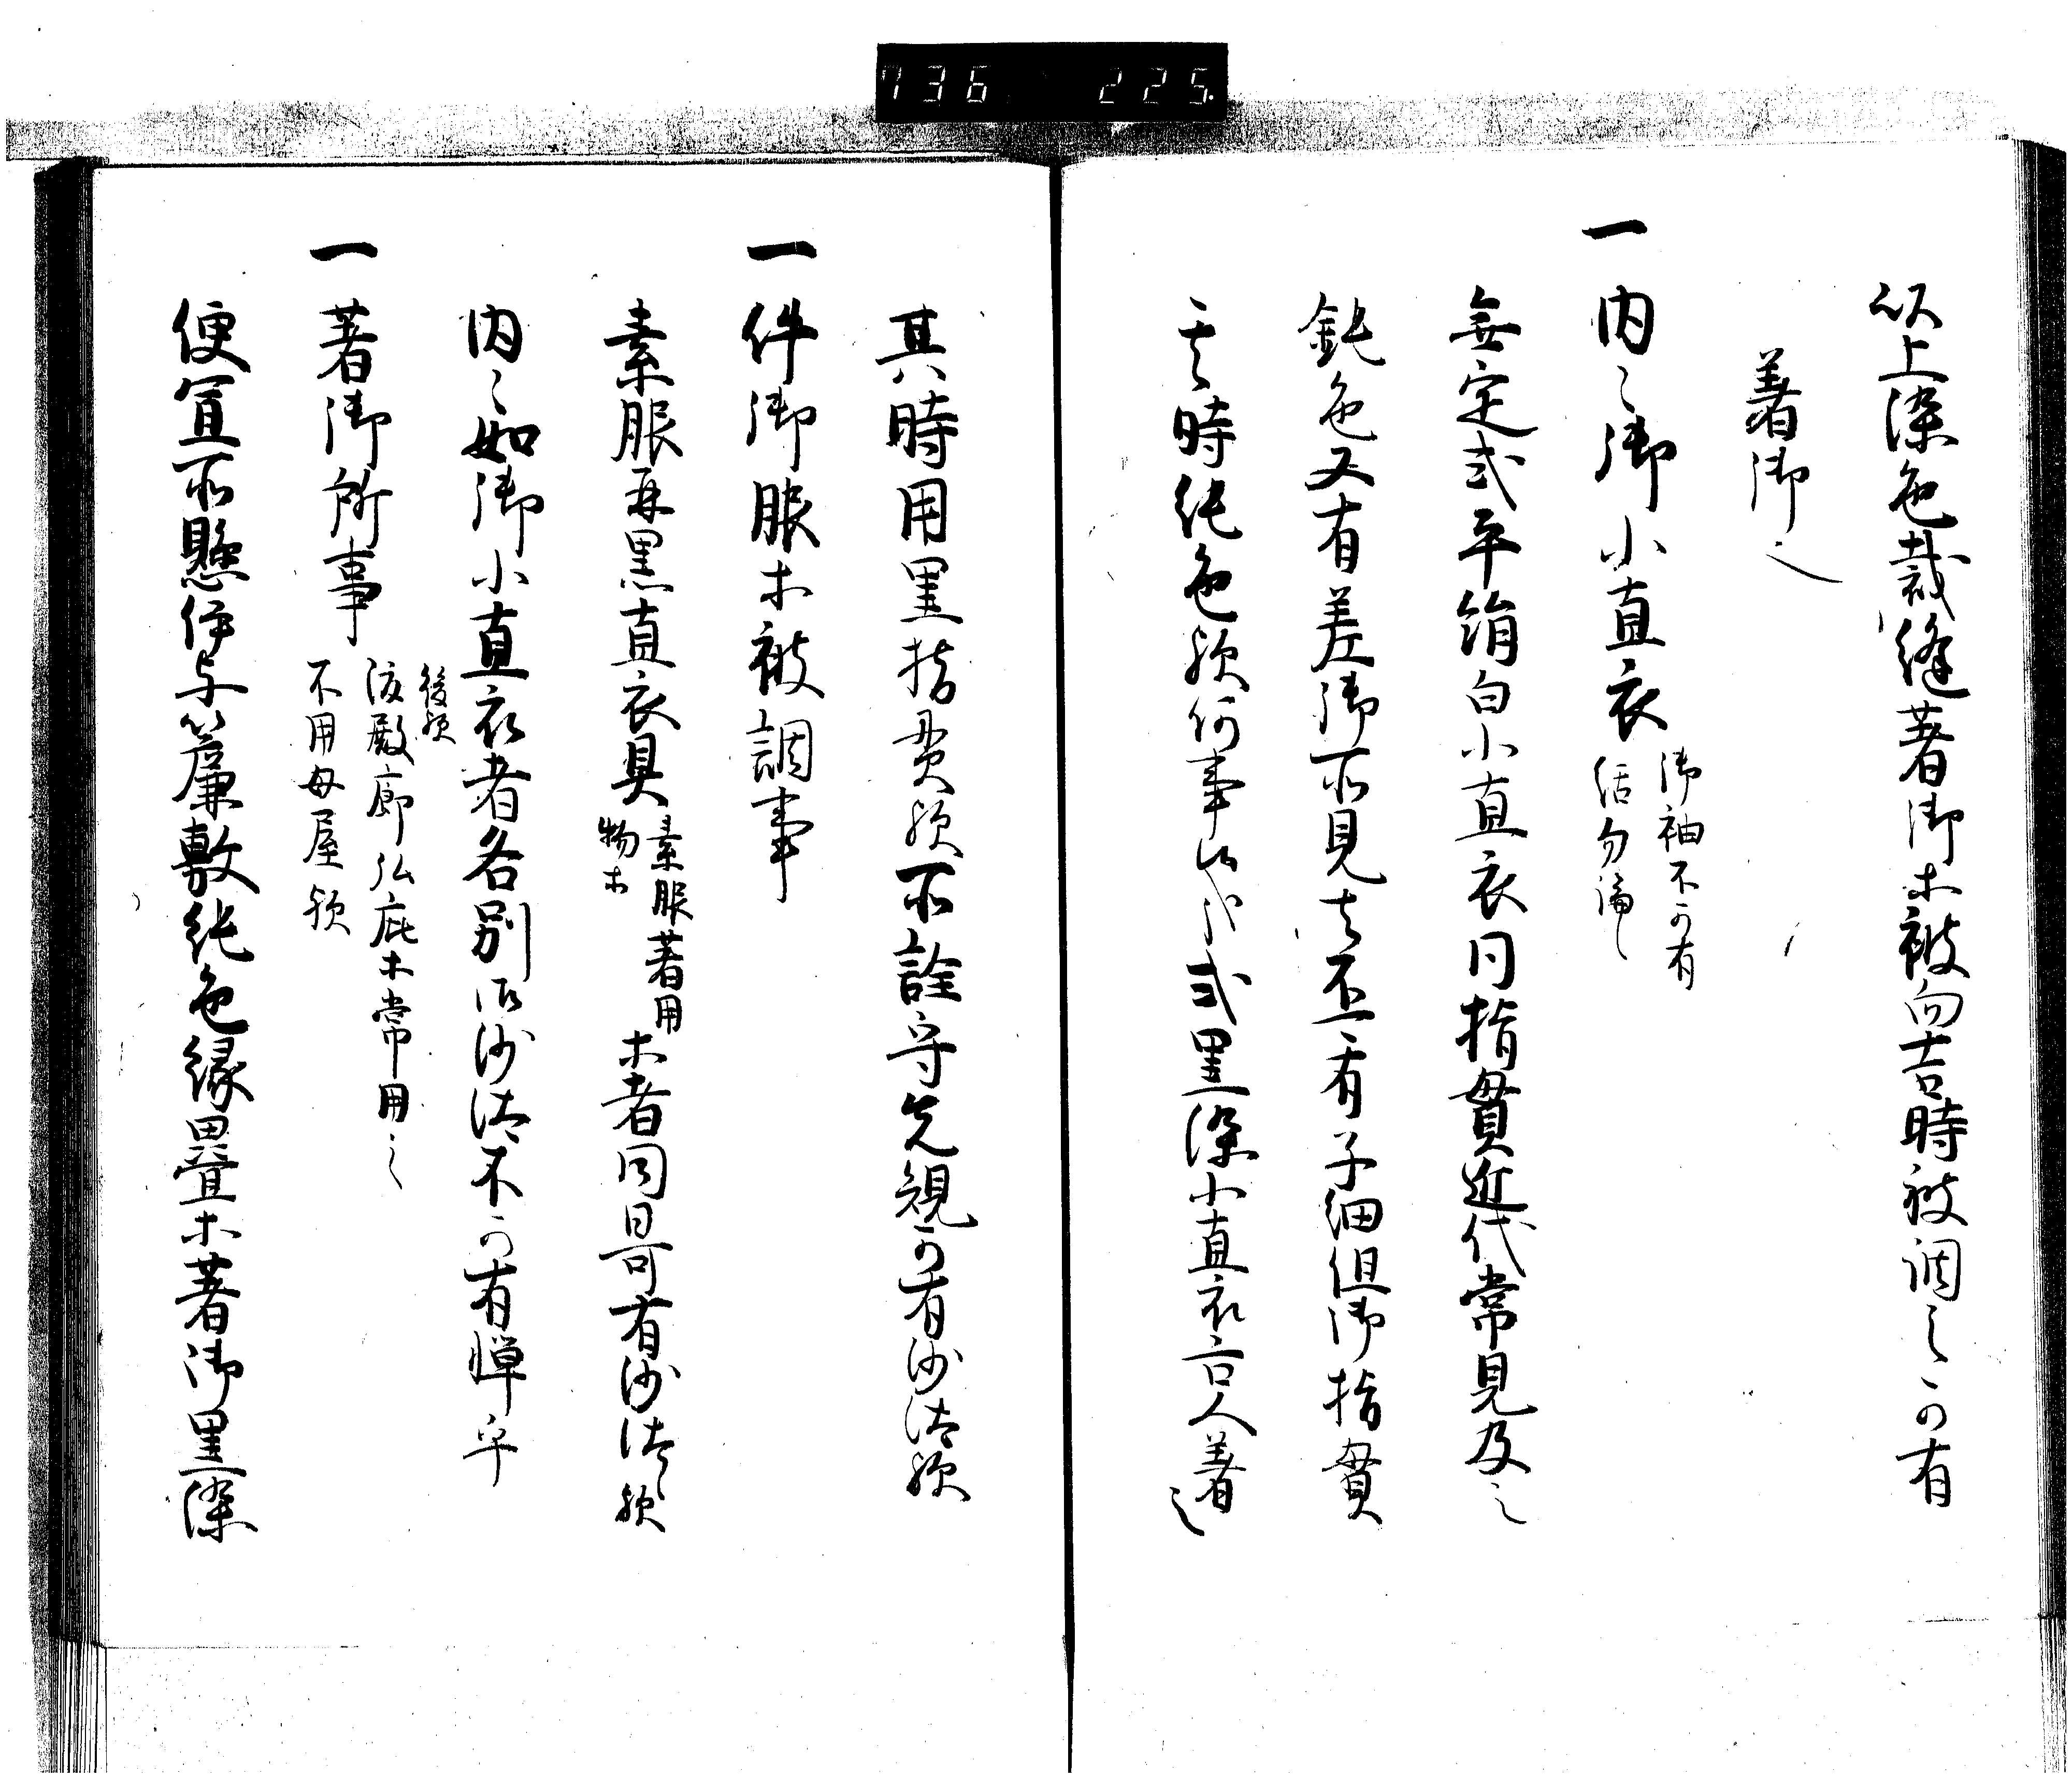 736 225
以上染色裁縫著御木被向吉時被調之可有
著御之
一内〻御小直衣 御袖不可有
括勿論
無定式平絹白小直衣同指貫近代常見及之
鈍色又有差御所見之上不可有子細但御指貫
其時純色歟何事候哉或黒染小直衣古人著之
其時用黒指貫歟所詮守先規可有沙汰歟
一件御服木被調事
素服再黒直衣具 素服著用
物木 木者同日哥有沙汰歟
内〻如御小直衣者各別御沙汰不可有憚乎
一著御所事 後歟
渡殿廊弘庇木常用之
不用母屋歟
便宜所懸伊与簾敷純色縁畳木著御黒染